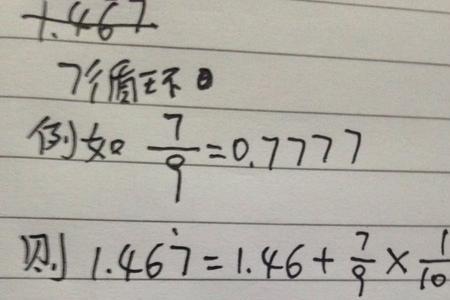 1.467
7循环
例如 7/9 = 0.7777
则 1.467̇ = 1.46 + 7/9 × 1/10